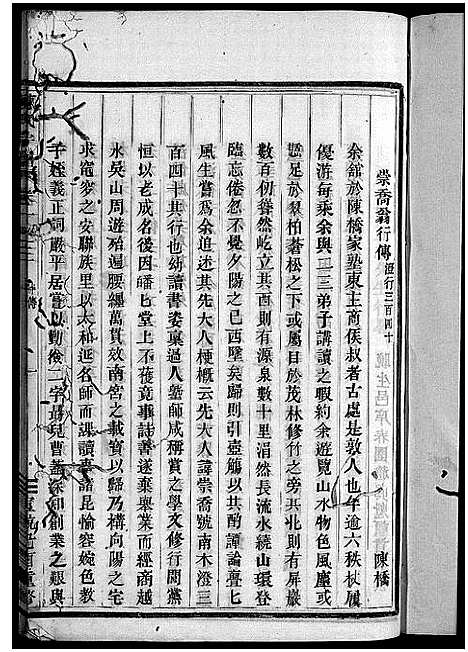 崇喬翁行傳 澄行三百四十 陳橋
余舘於陳橋家塾東主商侯叔者古處是敦人也年逾六秩杖履
優游每乘余與二三弟子講讀之暇約余遊覽山水物色風塵或
憇足於翠柏蒼松之下或屬目於茂林修竹之旁其北則有屏巖
數百仞聳然屹立其前則有源泉數十里涓然長流水繞山環登
臨忘倦忽不覺夕陽之已西墜矣歸則引壺觴以共酌譚論亹亹
風生嘗爲余追述先大人梗槪云先大人諱崇喬號南木澄三
百四十其行也幼讀書姿稟過人塾師咸稱賞之學文修行閭黨
恒以老成名後因皤匕堂上不獲竟事詩書遂棄舉業而經商越
水吳山周遊殆遍腰纏萬貫效南宮之載寶以歸乃構向陽之宅
求窀穸之安聯族里以太和延名師而課讀臺諸昆愉容婉色教
子姪義正詞嚴平居嘗以勤儉二字最兒曹蓋深知創業之艱與